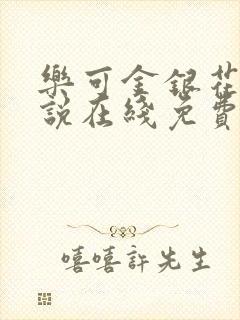 樂可金銀花
說在綫免費
嘻嘻許先生